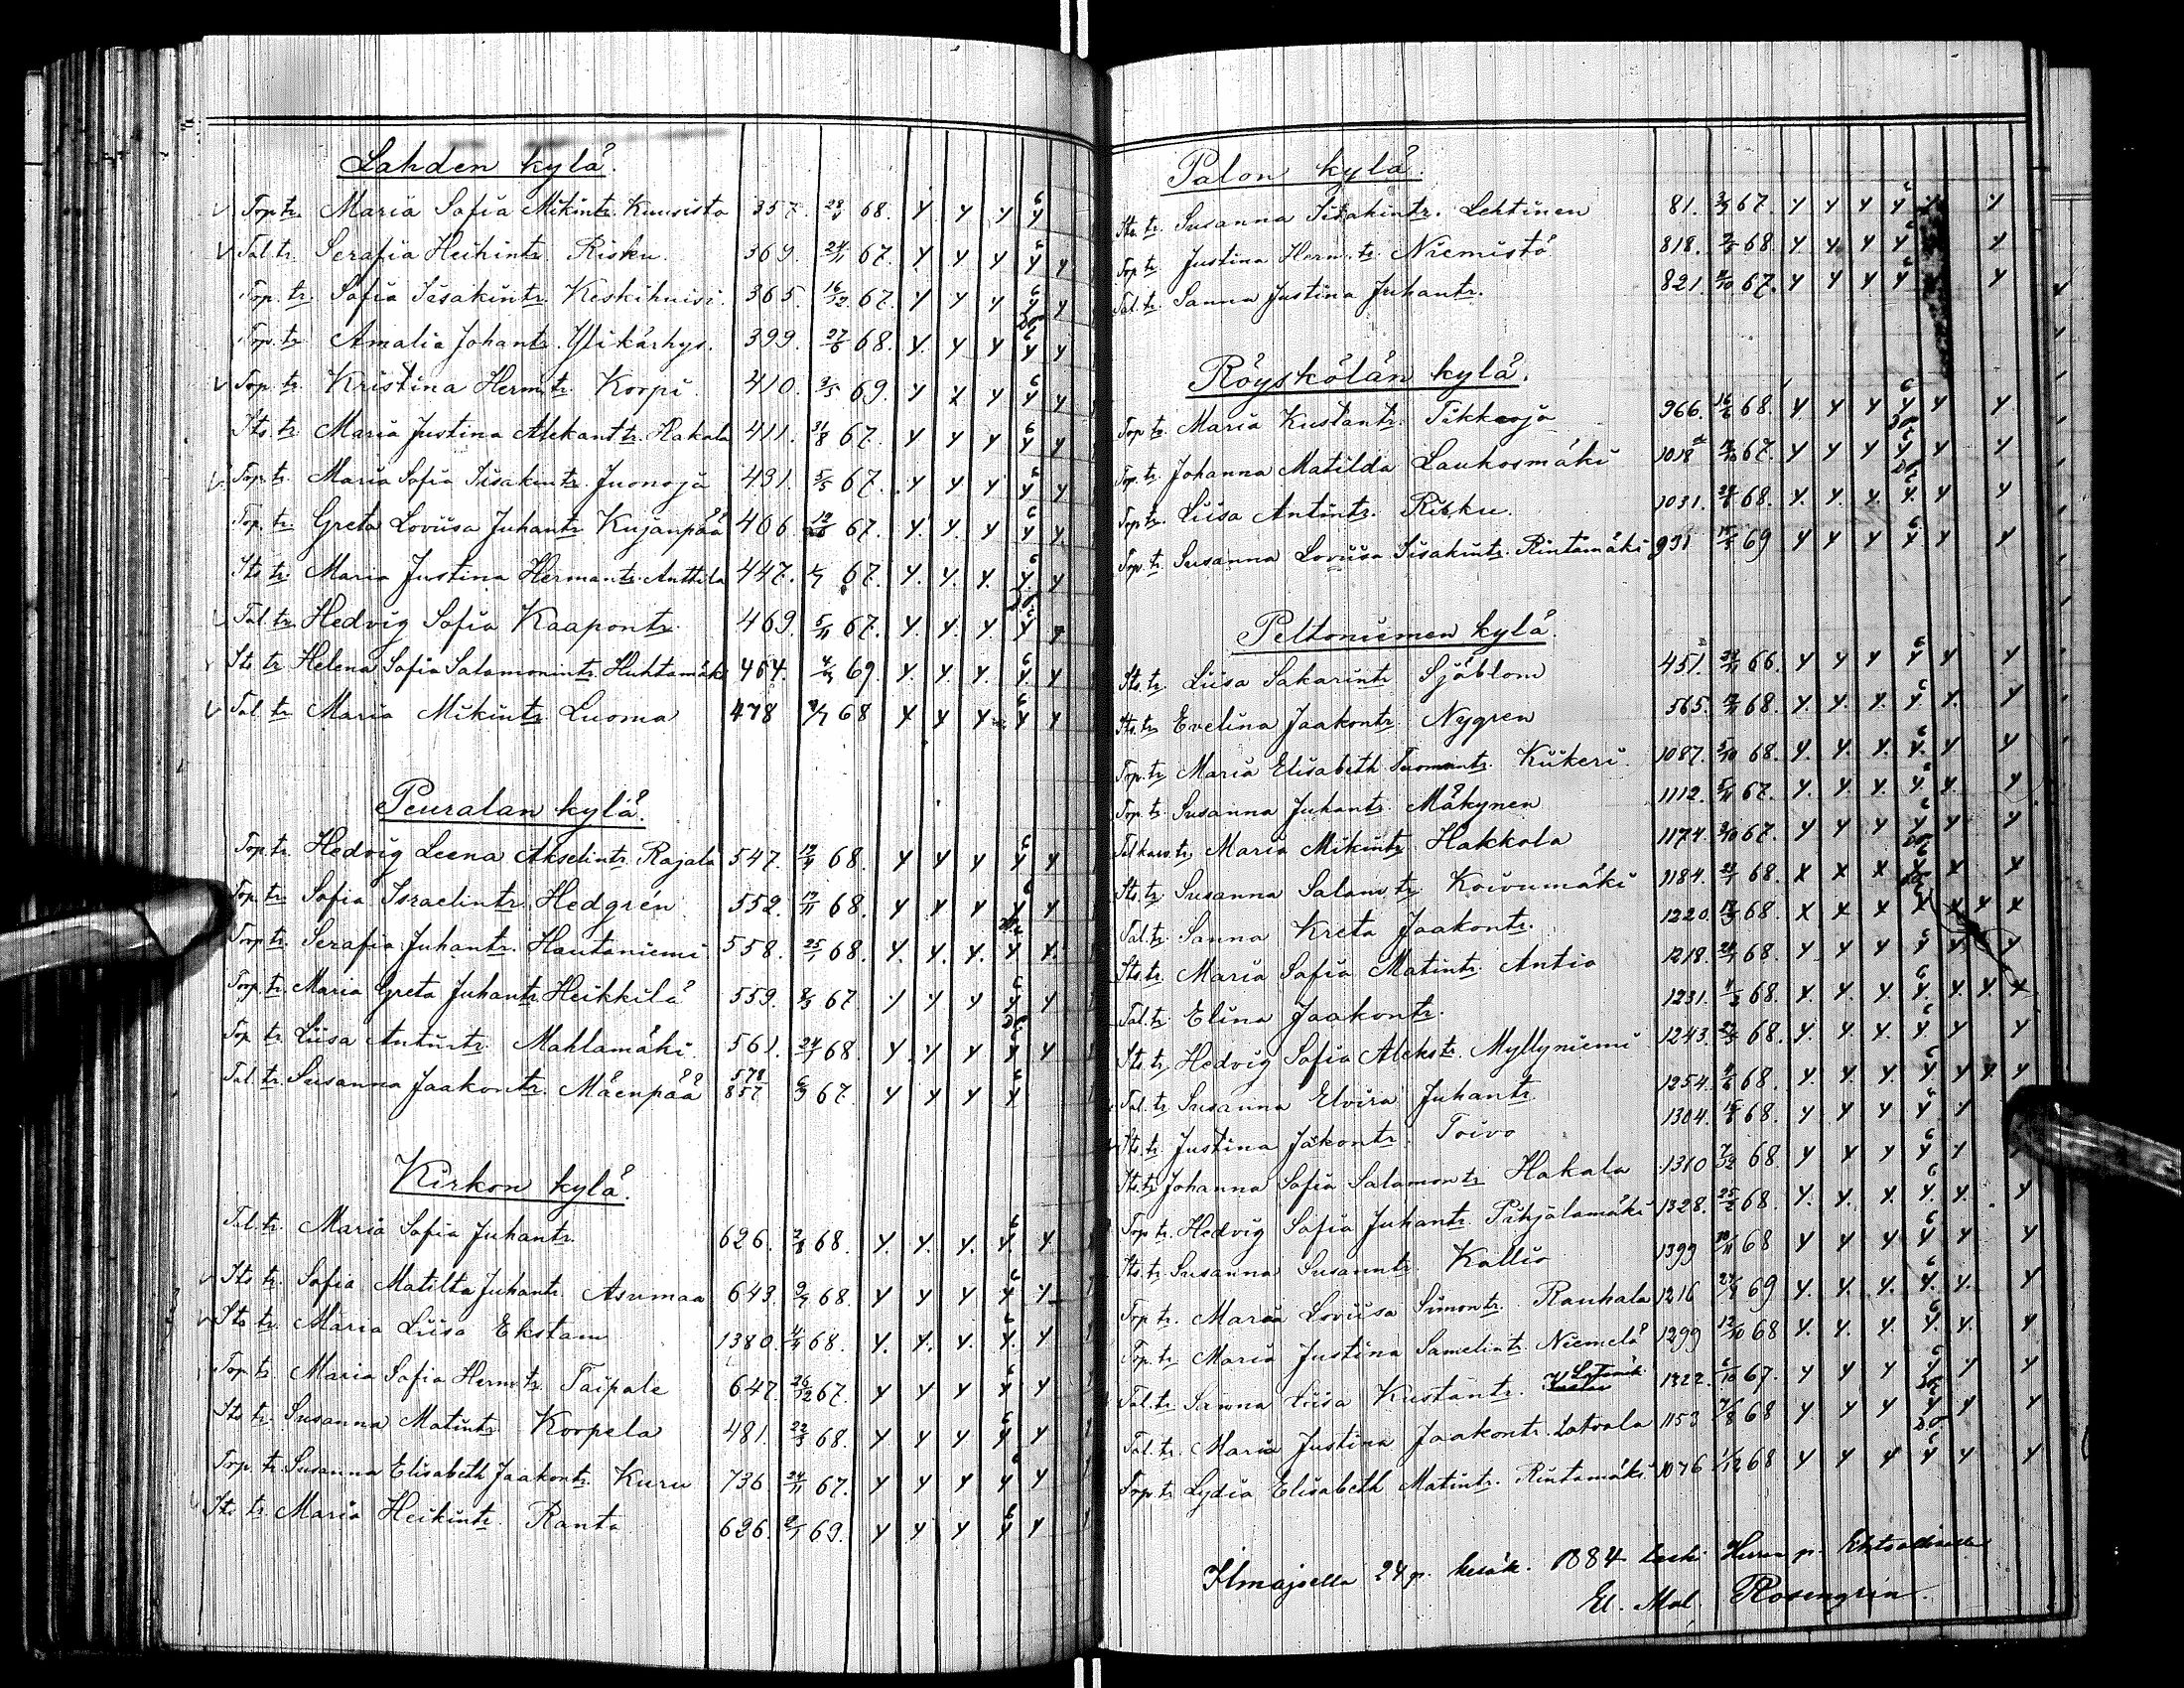 Lahden kylä.
Torp. tr. Maria Sofia Mikintr. Kuusisto 357. 68. y y y y
Tal. tr. Serafia Heikintr. Risku 369. 24/11 67. y y y y y
Torp. tr. Sofia Iisakintr. Keskihuisi. 365. 16/12 67. y y y y y
Torp. tr. Amalia Johantr. Ylikärhys. 399. 27/6 68. y. y y y y
Torp. tr. Kristina Herm. tr. Korpi 410. 3/5 69. y y y y y
Its. tr. Maria Justina Aleksant. tr. Hakala 411. 31/8 67. y y y y y
Torp. tr. Maria Sofia Iisakintr. Juonoja 431. 5/5 67. y y y y y
Torp. tr. Greta Loviisa Juhantr. Kujanpää 406 67. y. y. y y y
Its. tr. Maria Justina Hermantr. Anttila 447. 67. y. y. y. y. y
Tal. tr. Hedvig Sofia Kaapontr. 469. 5/11 67. y. y. y. y y
Its. tr. Helena Sofia Salamonintr. Huhtamäki 464. 69. y. y. y. y. y
Tal. tr. Maria Mikintr. Luoma 478 68 y y y y y
Peuralan kylä.
Torp. tr. Hedvig Leena Akselintr. Rajala 547. 68. y y y y y
Torp. tr. Sofia Israelintr. Hedgrén 552. 68. y y y y y
Torp. tr. Serafia Juhantr. Hautaniemi 558. 25/1 68. y. y. y. y y.
Torp. tr. Maria Greta Juhantr. Heikkilä 559. 67. y y y y y
Torp. tr. Liisa Antintr. Mahlamäki. 561. 24/1 68. y. y y y y
Tal. tr. Susanna Jaakontr. Mäenpää 578 857 67. y y y y
Kirkon kylä.
Tal. tr. Maria Sofia Juhantr. 626. 68. y. y. y. y. y
Its. tr. Sofia Matilta Juhantr. Asumaa 643. 68. y y y y y
Its. tr. Maria Liisa Ekstam 1380. 68. y. y. y. y. y
Torp. tr. Maria Sofia Herm. tr. Taipale 647. 26/12 67. y y y y y
Its. tr. Susanna Matintr. Korpela 481. 22/3 68. y. y y y y
Torp. tr. Susanna Elisabeth Jaakontr. Kuru 736. 24/11 67. y y y y y
Its. tr. Maria Heikintr. Ranta 626. 69. y y y y y
Palon kylä.
Its. tr. Susanna Iisakintr. Lehtinen 81. 67. y y y y y
Torp. tr. Justina Herm. tr. Niemistö 818. 68. y y y y y
Tal. tr. Sanna Justina Juhantr. 821. 67. y y y y y
Röyskölän kylä.
Torp. tr. Maria Kustantr. Tikkaoja 966. 16/6 68. y y y y y y
Torp. tr. Johanna Matilda Laukosmäki 1018 67. y y y y y y
Torp. tr. Liisa Antintr. Risku. 1031. 68. y. y. y. y. y y
Torp. tr. Susanna Loviisa Iisakintr. Rintamäki 931 69 y y y y y y
Peltoniemen kylä.
Its. tr. Liisa Sakarintr. Sjöblom 451. 66. y y y y y y
Its. tr. Evelina Jaakontr. Nygren 565. 68. y. y. y. y y. y
Torp. tr. Maria Elisabeth Tuomantr. Kiikeri. 1087. 3/10 68. y. y. y. y. y y
Torp. tr. Susanna Juhantr. Mäkynen 1112. 67. y. y. y. y y. y
Maria Mikintr. Hakkola 1174. 3/10 67. y y y y y y
Its. tr. Susanna Salam. tr. Koivumäki 1184. 68. x x x x x x
Tal. tr. Sanna Kreta Jaakontr. 1220. 68. x x x x x x
Its. tr. Maria Sofia Matintr. Antio 1218. 68. y. y y y y y
Tal. tr. Elina Jaakontr. 1231. 68. y. y. y. y. y. y. x
Its. tr. Hedvig Sofia Alekstr. Myllyniemi 1243. 68. y. y. y. y y y
Tal. tr. Susanna Elvira Juhantr. 1254. 68. y. y. y. y y y. y
Its. tr. Justina Jakontr. Toivo 1304. 68. y y y y y
Its. tr. Johanna Sofia Salamontr. Hakala 1310 68. y y y y y
Torp. tr. Hedvig Sofia Juhantr. Pihjalamäki 1328. 25/2 68. y. y. y. y. y. y
Its. tr. Susanna Susanntr. Kallio 1399 68 y y y y y y
Torp. tr. Maria Loviisa Simontr. Rauhala 1216 69 y. y. y. y. y. y
Torp. tr. Maria Justina Samelintr. Niemelä 1299 12/10 68 y. y. y. y. y. y
Tal. tr. Sanna Liisa Kustantr. 1322. 6/10 67. y y y y y y
Tal. tr. Maria Justina Jaakontr. Latvala 1153 68 y y y y y y
Torp. tr. Lydia Elisabeth Matintr. Rintamäki 1076 1/12 68 y y y y y y
Ilmajoella 24 p. kesäk. 1884
El. Mal. Rosengren.